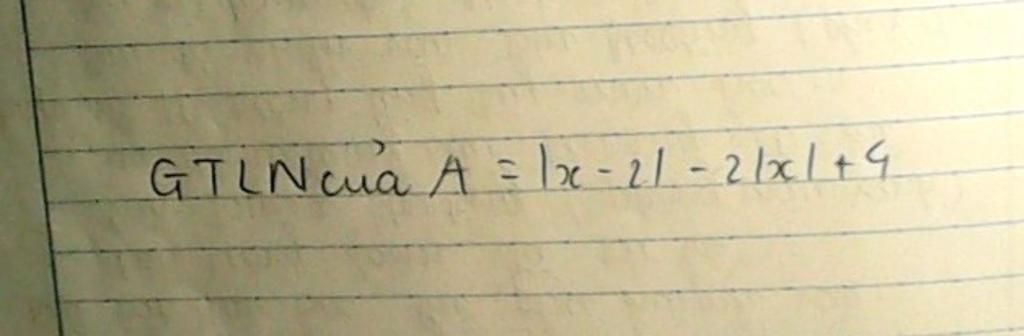 GTLN của A = |x - 2| - 2|x| + 4